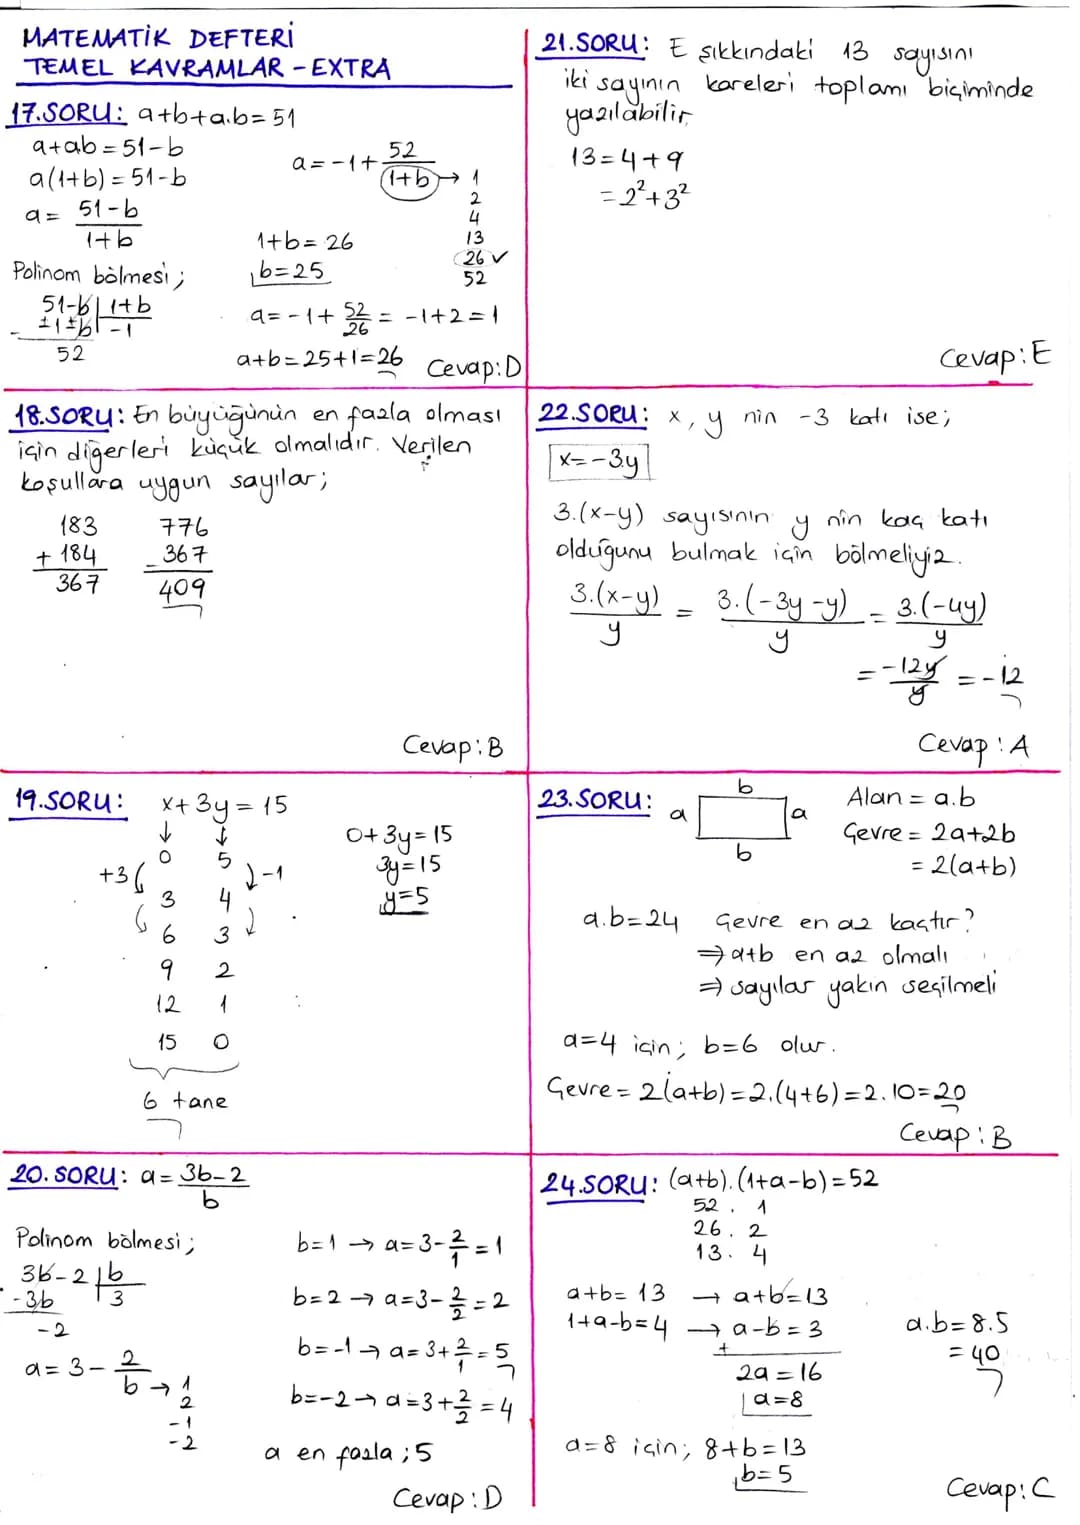 MATEMATİK DEFTERİ
TEMEL KAVRAMLAR - EXTRA
17.SORU: a+b+a.b=51
a+ab=51-b
a(1+b)=51-b
a= 51-b / 1+b
Polinom bölmesi;
51-b | 1+b
±1±b | -1
52
a=-1+ 52 / 1+b → 1
2
4
13
26 ✓
52
1+b=26
b=25
a=-1+ 52/26 = -1+2=1
a+b=25+1=26
Cevap:D
18.SORU: En büyüğünün en fazla olması
için diğerleri küçük olmalıdır. Verilen
koşullara uygun sayılar;
183 776
+ 184 - 367
367 409
Cevap:B
19.SORU: x+3y=15
↓ ↓
0 5
+3 -1
3 4
6 3
9 2
12 1
15 0
6 tane
0+3y=15
3y=15
y=5
20.SORU: a= 3b-2 / b
Polinom bölmesi;
3b-2 | b
-3b | 3
-2
a=3- 2/b → 1
2
-1
-2
b=1 → a=3-2/1=1
b=2 → a=3-2/2=2
b=-1 → a=3+2/1=5
b=-2 → a=3+2/2=4
a en fazla ; 5
Cevap:D
21.SORU: E şıkkındaki 13 sayısını
iki sayının kareleri toplamı biçiminde
yazılabilir.
13=4+9
=2²+3²
Cevap:E
22.SORU: x, y nin -3 katı ise;
x=-3y
3.(x-y) sayısının y nin kaç katı
olduğunu bulmak için bölmeliyiz.
3.(x-y) / y = 3.(-3y-y) / y = 3.(-4y) / y
= -12y / y = -12
Cevap:A
23.SORU: b
a a
b
Alan = a.b
Çevre = 2a+2b
= 2(a+b)
a.b=24 Çevre en az kaçtır?
⇒ a+b en az olmalı
⇒ sayılar yakın seçilmeli
a=4 için; b=6 olur.
Çevre = 2(a+b)=2.(4+6)=2.10=20
Cevap:B
24.SORU: (a+b).(1+a-b)=52
52 . 1
26 . 2
13 . 4
a+b=13 → a+b=13
1+a-b=4 → a-b=3
+
2a=16
a=8
a.b=8.5
=40
a=8 için; 8+b=13
b=5
Cevap:C